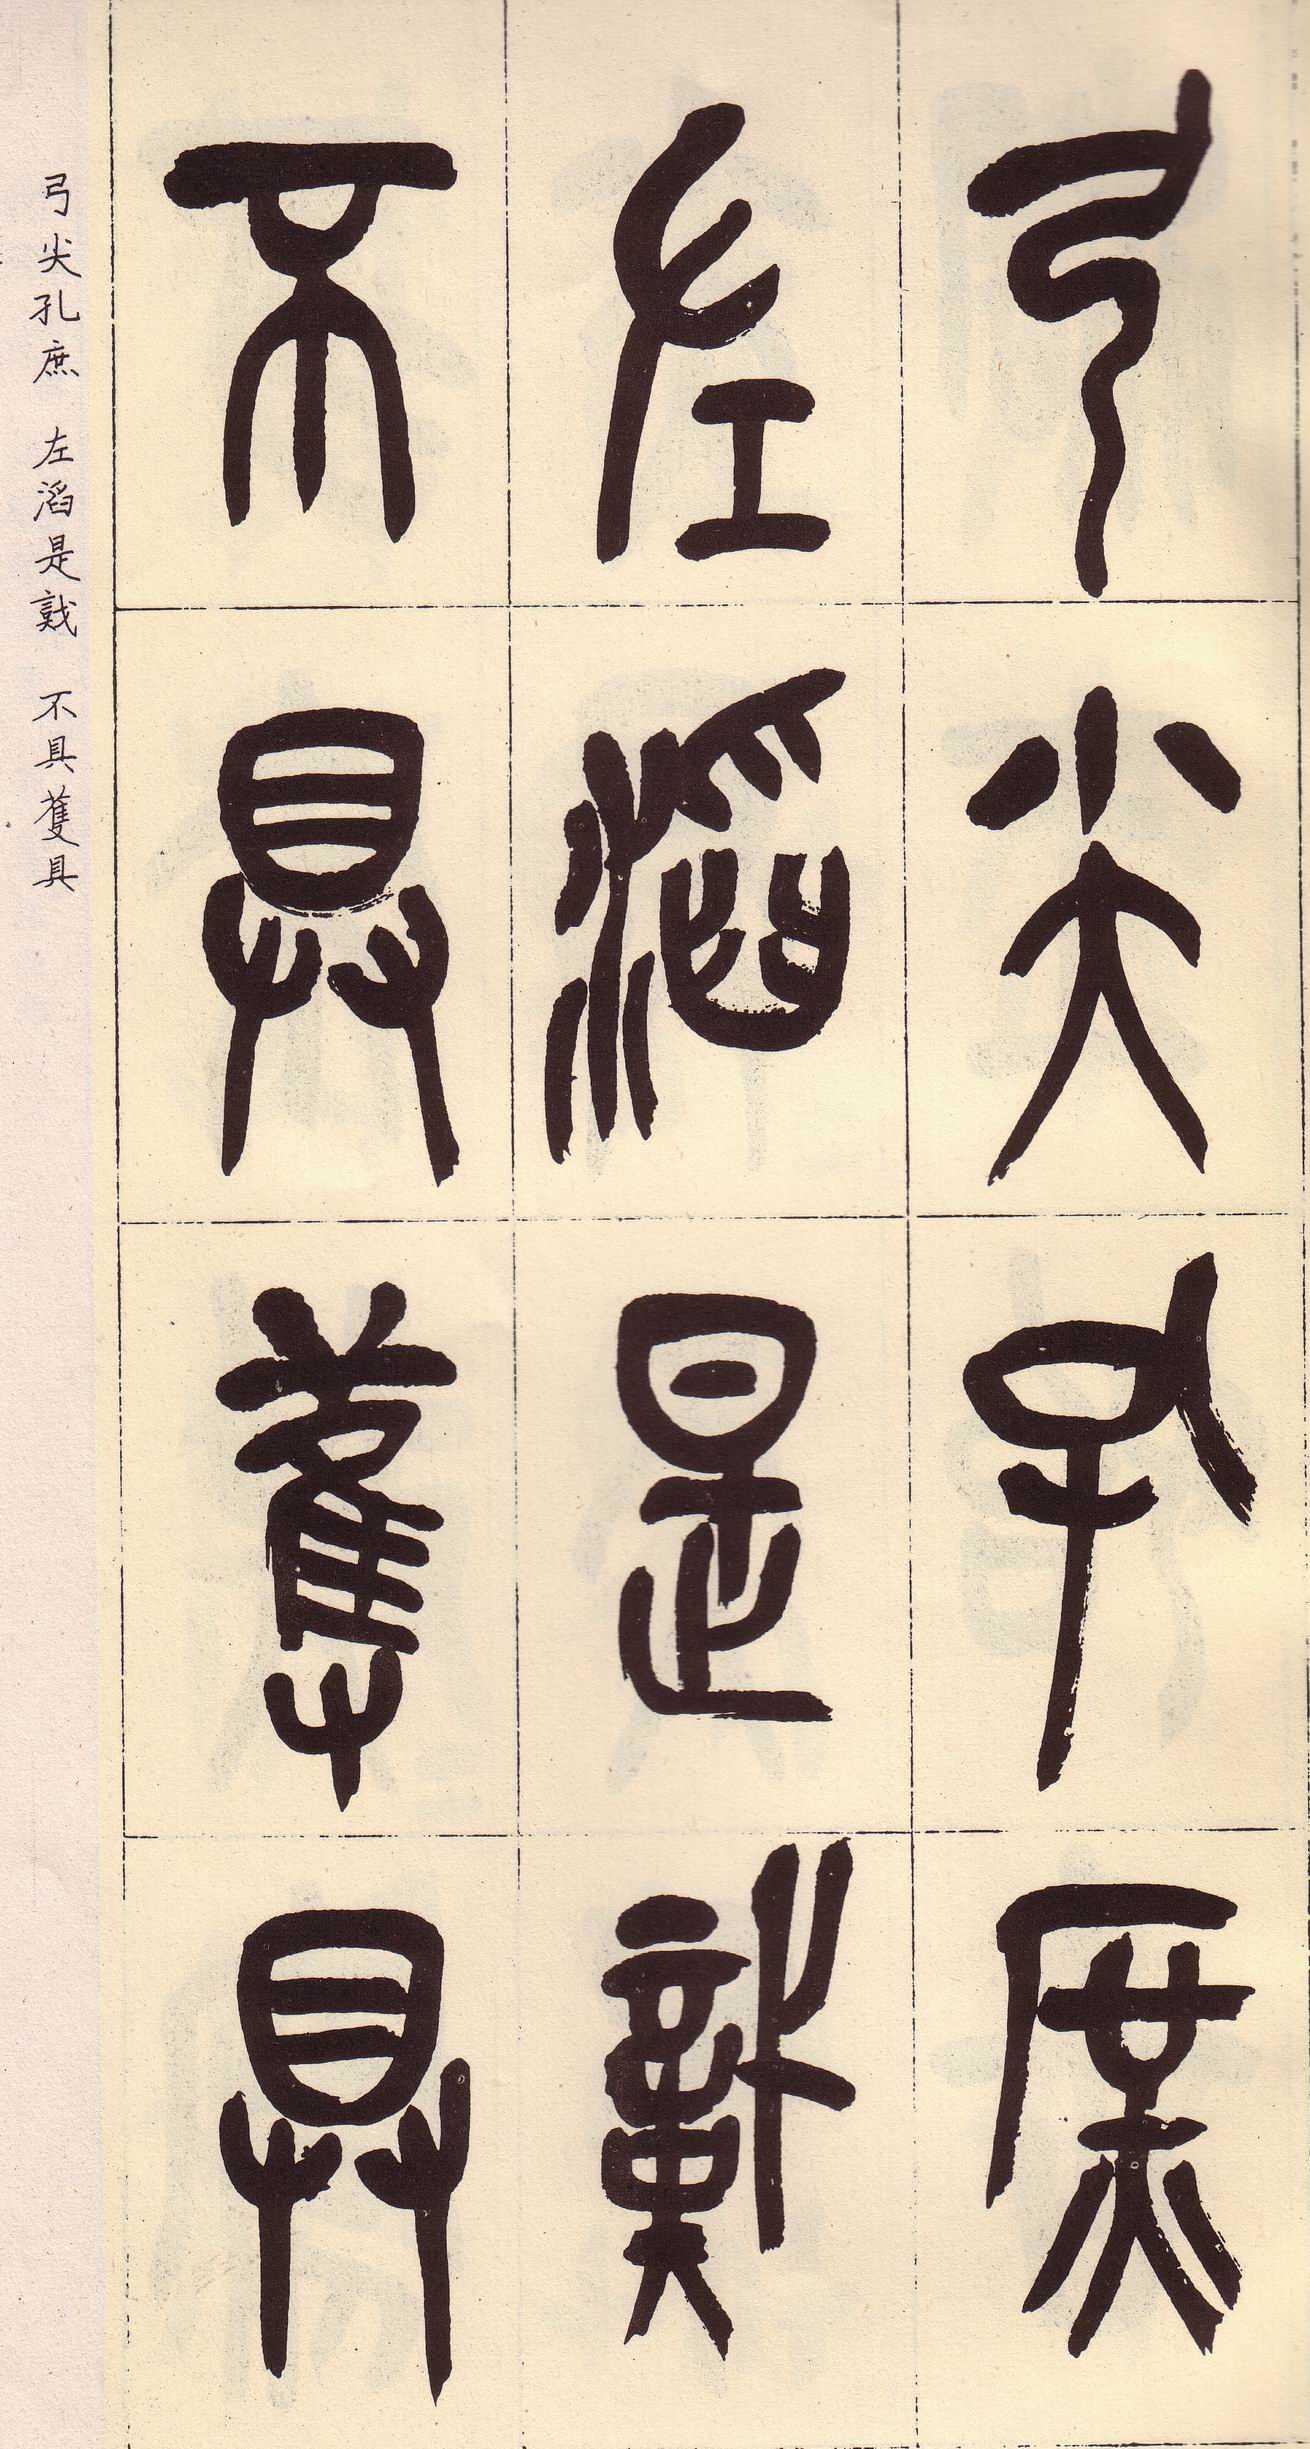 弓尖孔庶
左滔是戭
不具蒦具
弓尖孔庶 左滔是戭 不具蒦具